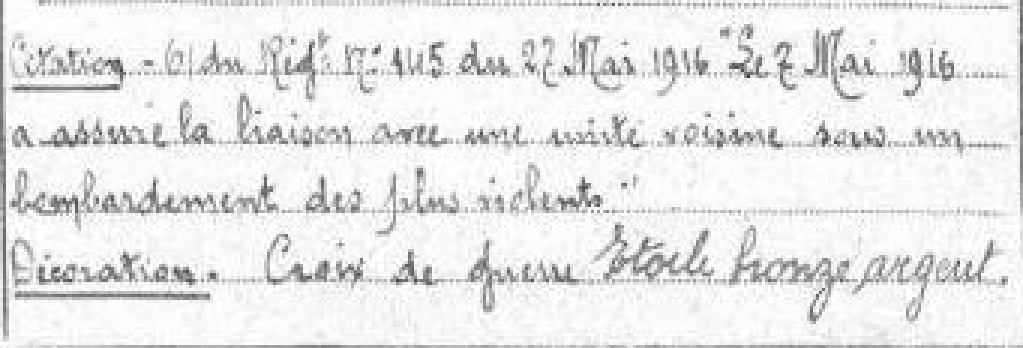 Citation - O/ du Régt. N° 145 du 27 Mai 1916 "Le 7 Mai 1916
a assuré la liaison avec une unité voisine sous un
bombardement des plus violents"
Décoration. Croix de guerre Etoile bronze, argent.